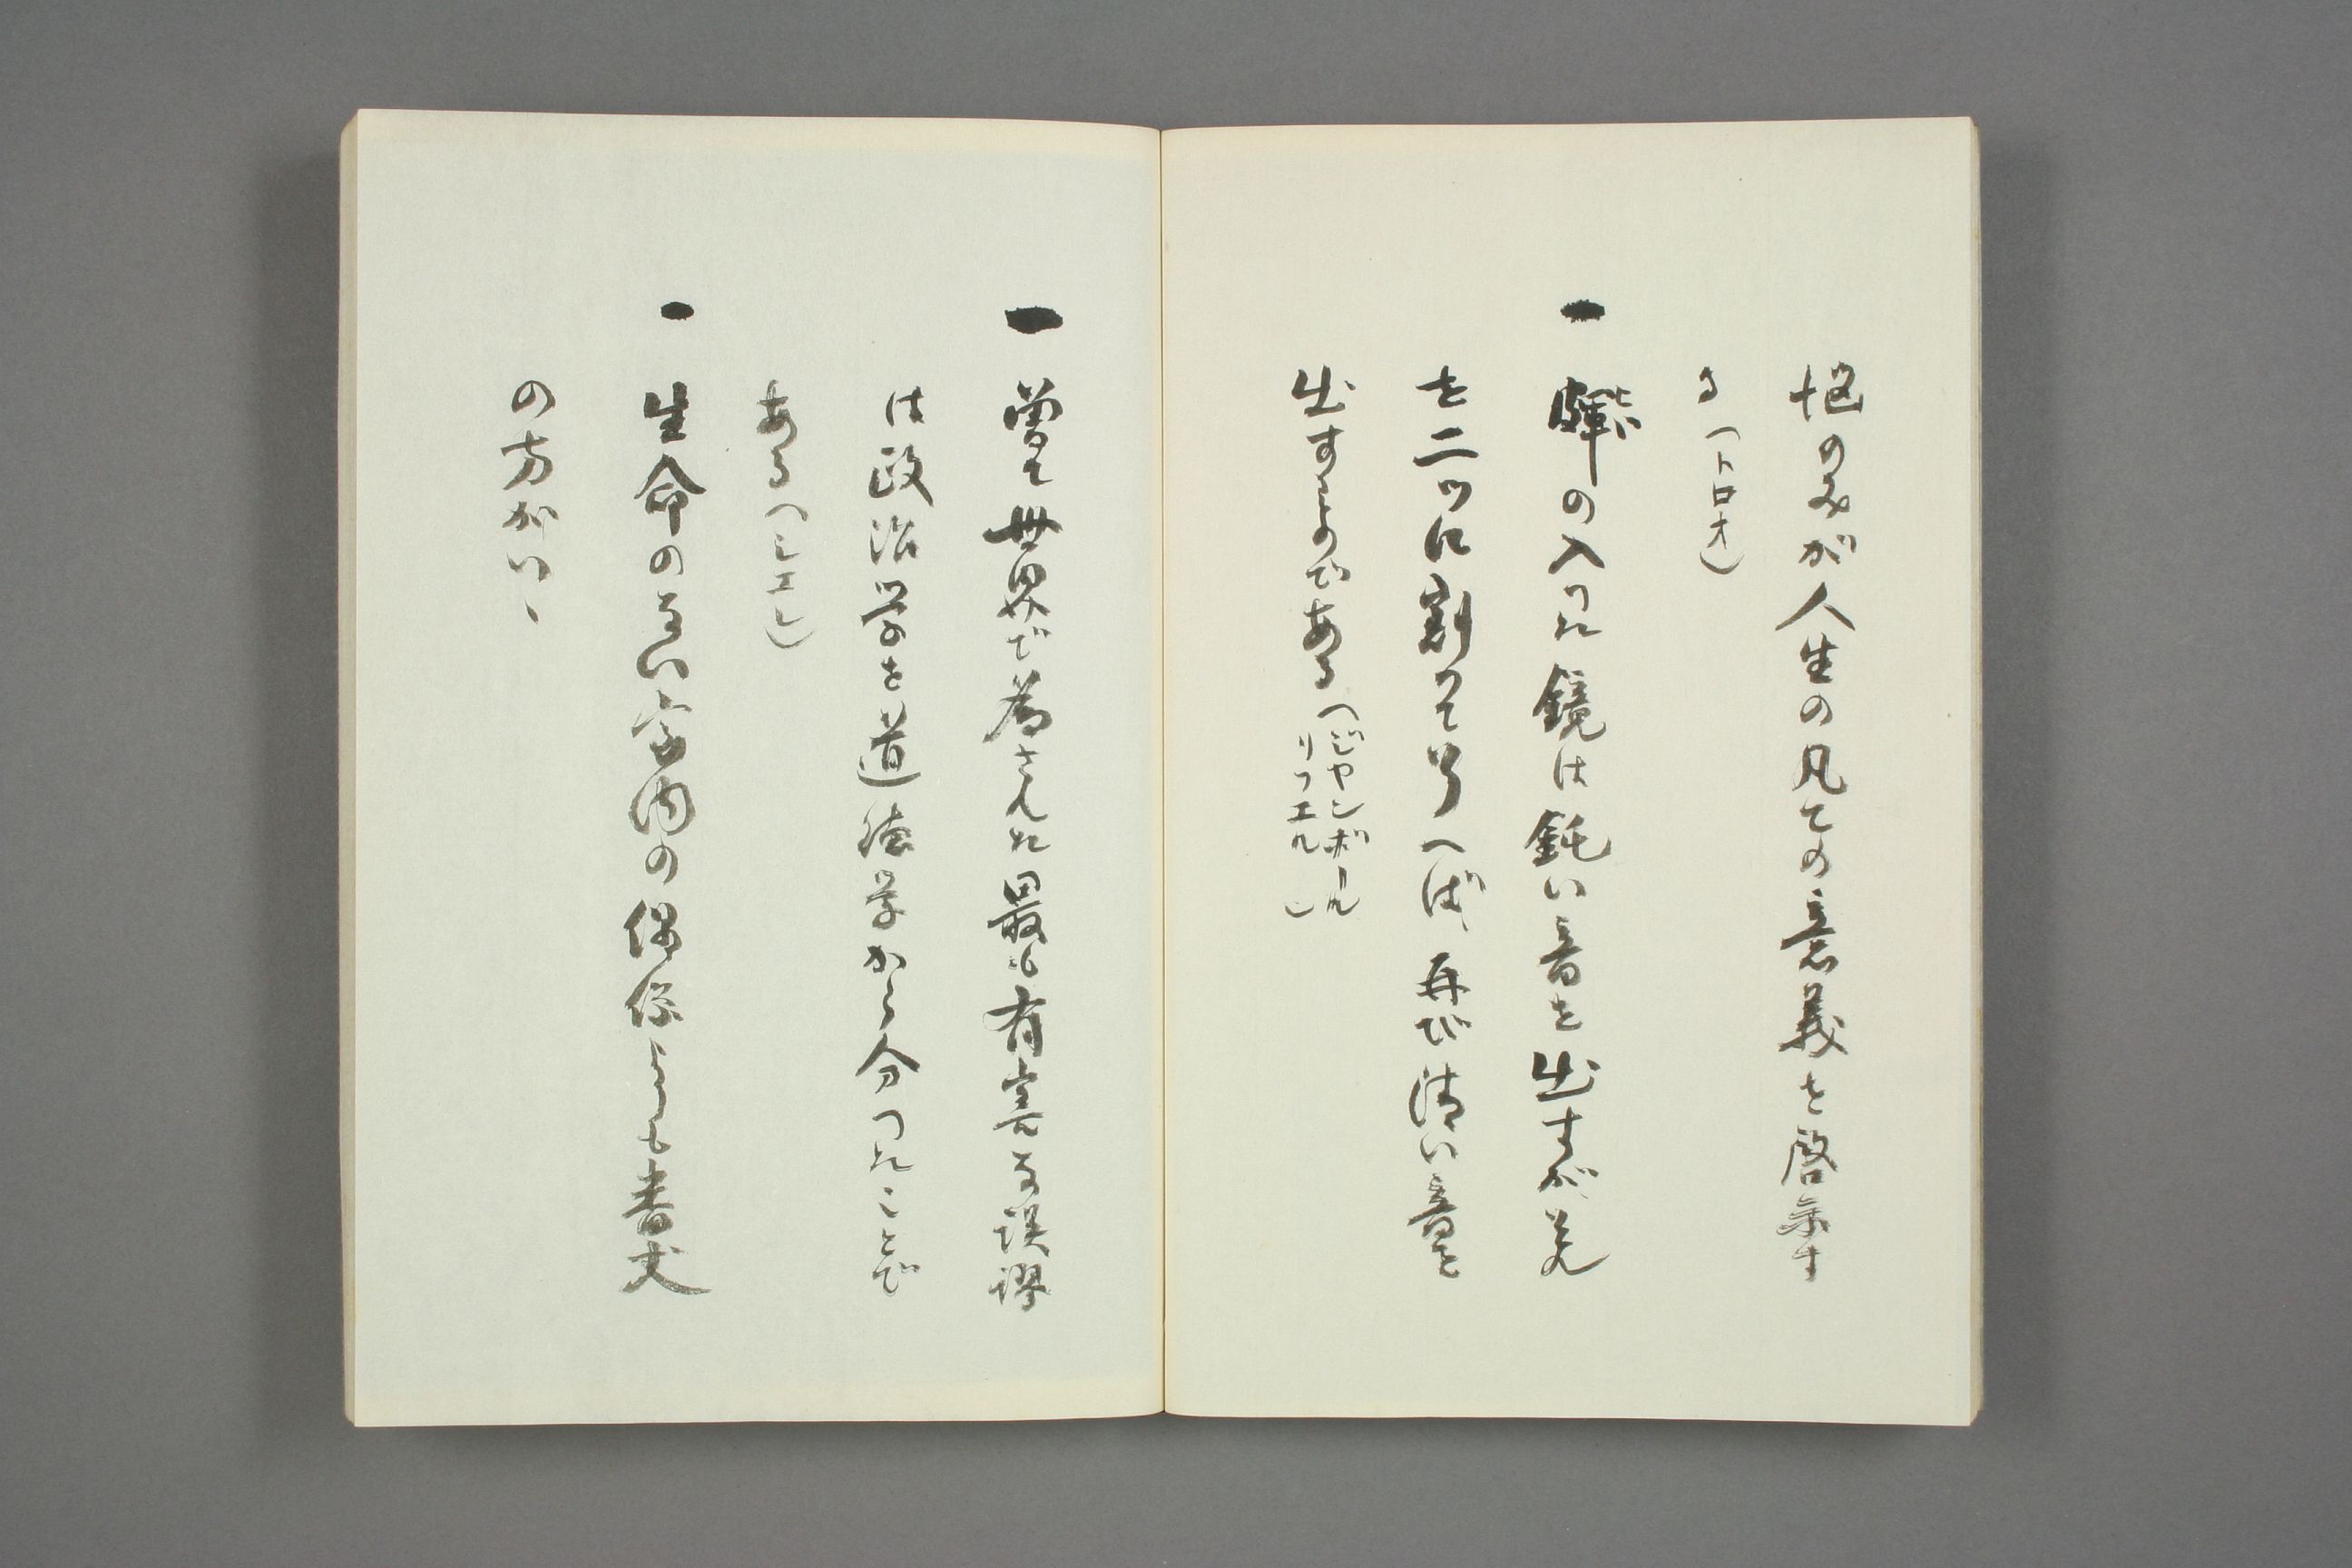 悩のみが人生の凡ての意義を啓示す
る(トロオ)
一 皹の入つた鏡は鈍い音を出すが其
を二ツに割つて了へば、再び清い音を
出すものである(ジヤンポール
リフエル)
一 曽て世界で為さんた最も有害な誤謬
は政治学を道徳学から分つたことで
ある(シエレ)
一 生命のない宇内の偶像よりも書丈
の方がいゝ